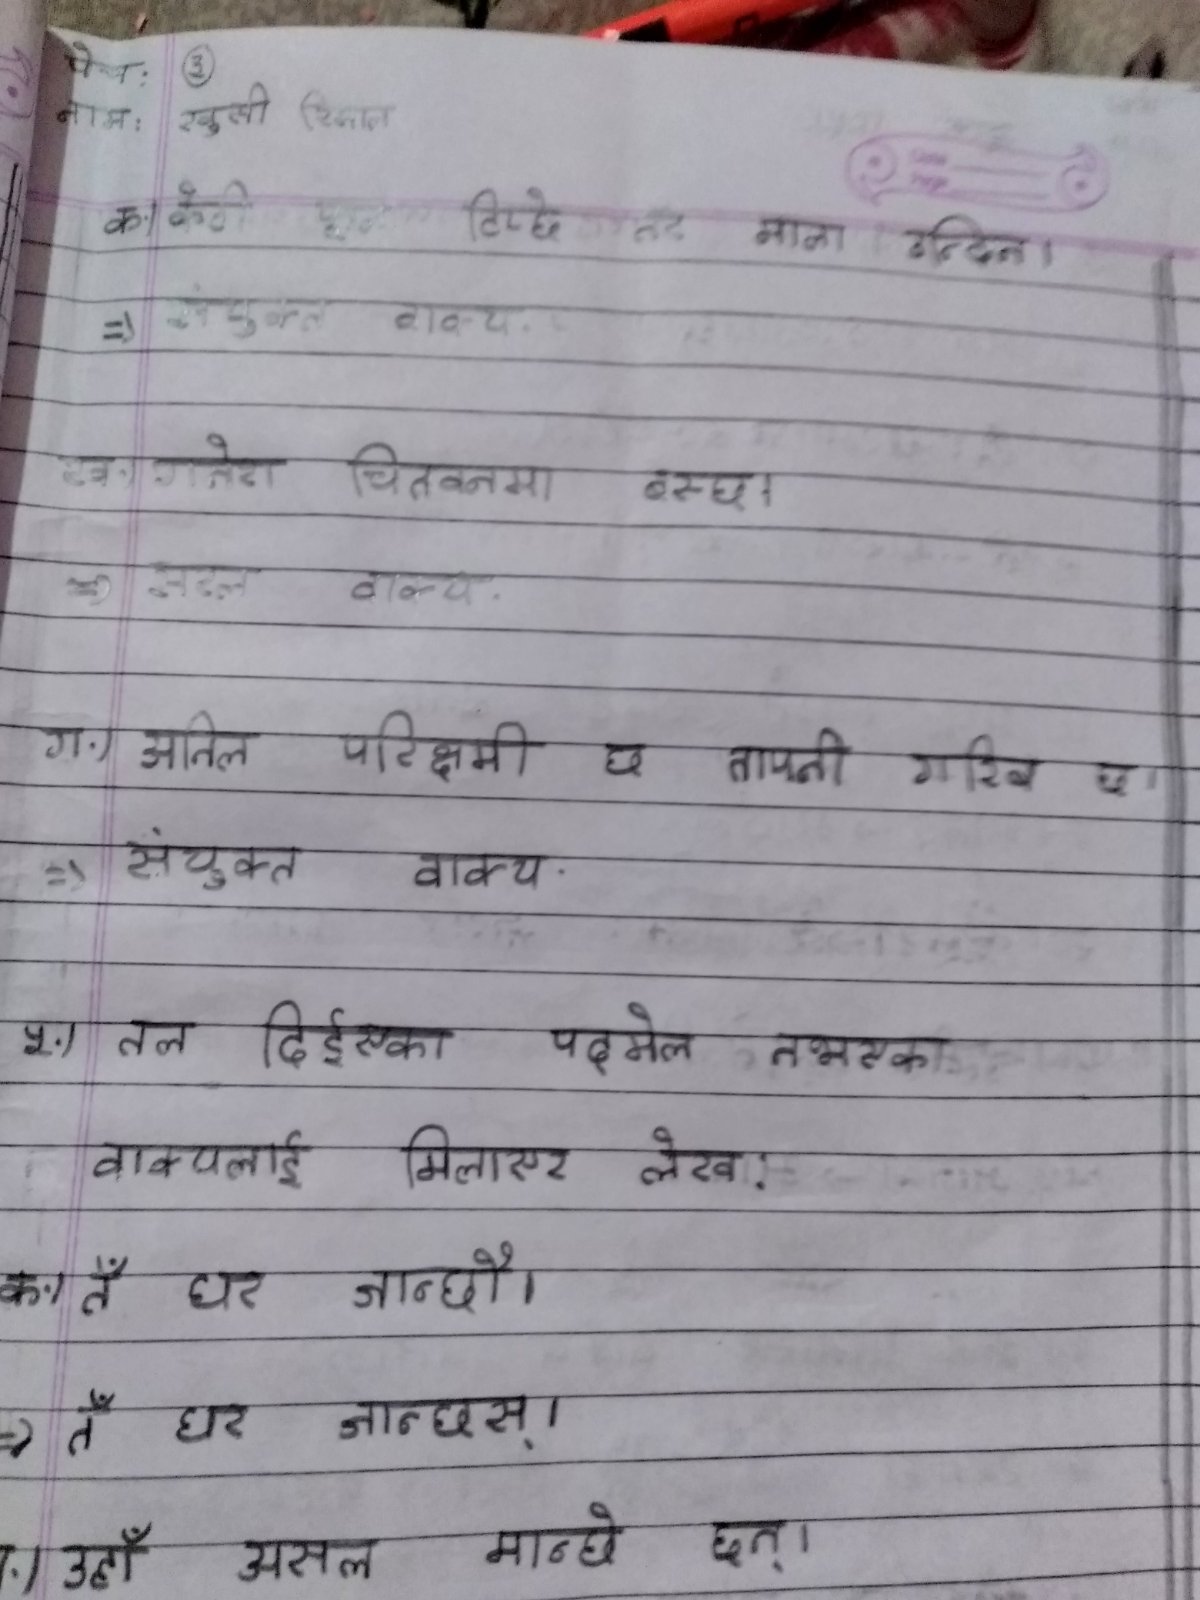 पेज: ③
नाम: खुसी
क.) केटी फूल टिप्छे तर माला उन्दिन।
=> संयुक्त वाक्य.
ख.) गजेरा चितवनमा बस्छ।
=> सरल वाक्य.
ग.) अनिल परिक्षमी छ तापनी गरिब छ।
=> संयुक्त वाक्य.
५.) तल दिईएका पदमेल नभएका
वाक्यलाई मिलाएर लेख:
क.) तँ घर जान्छौ।
=> तँ घर जान्छस्।
उहाँ असल मान्छे छन्।